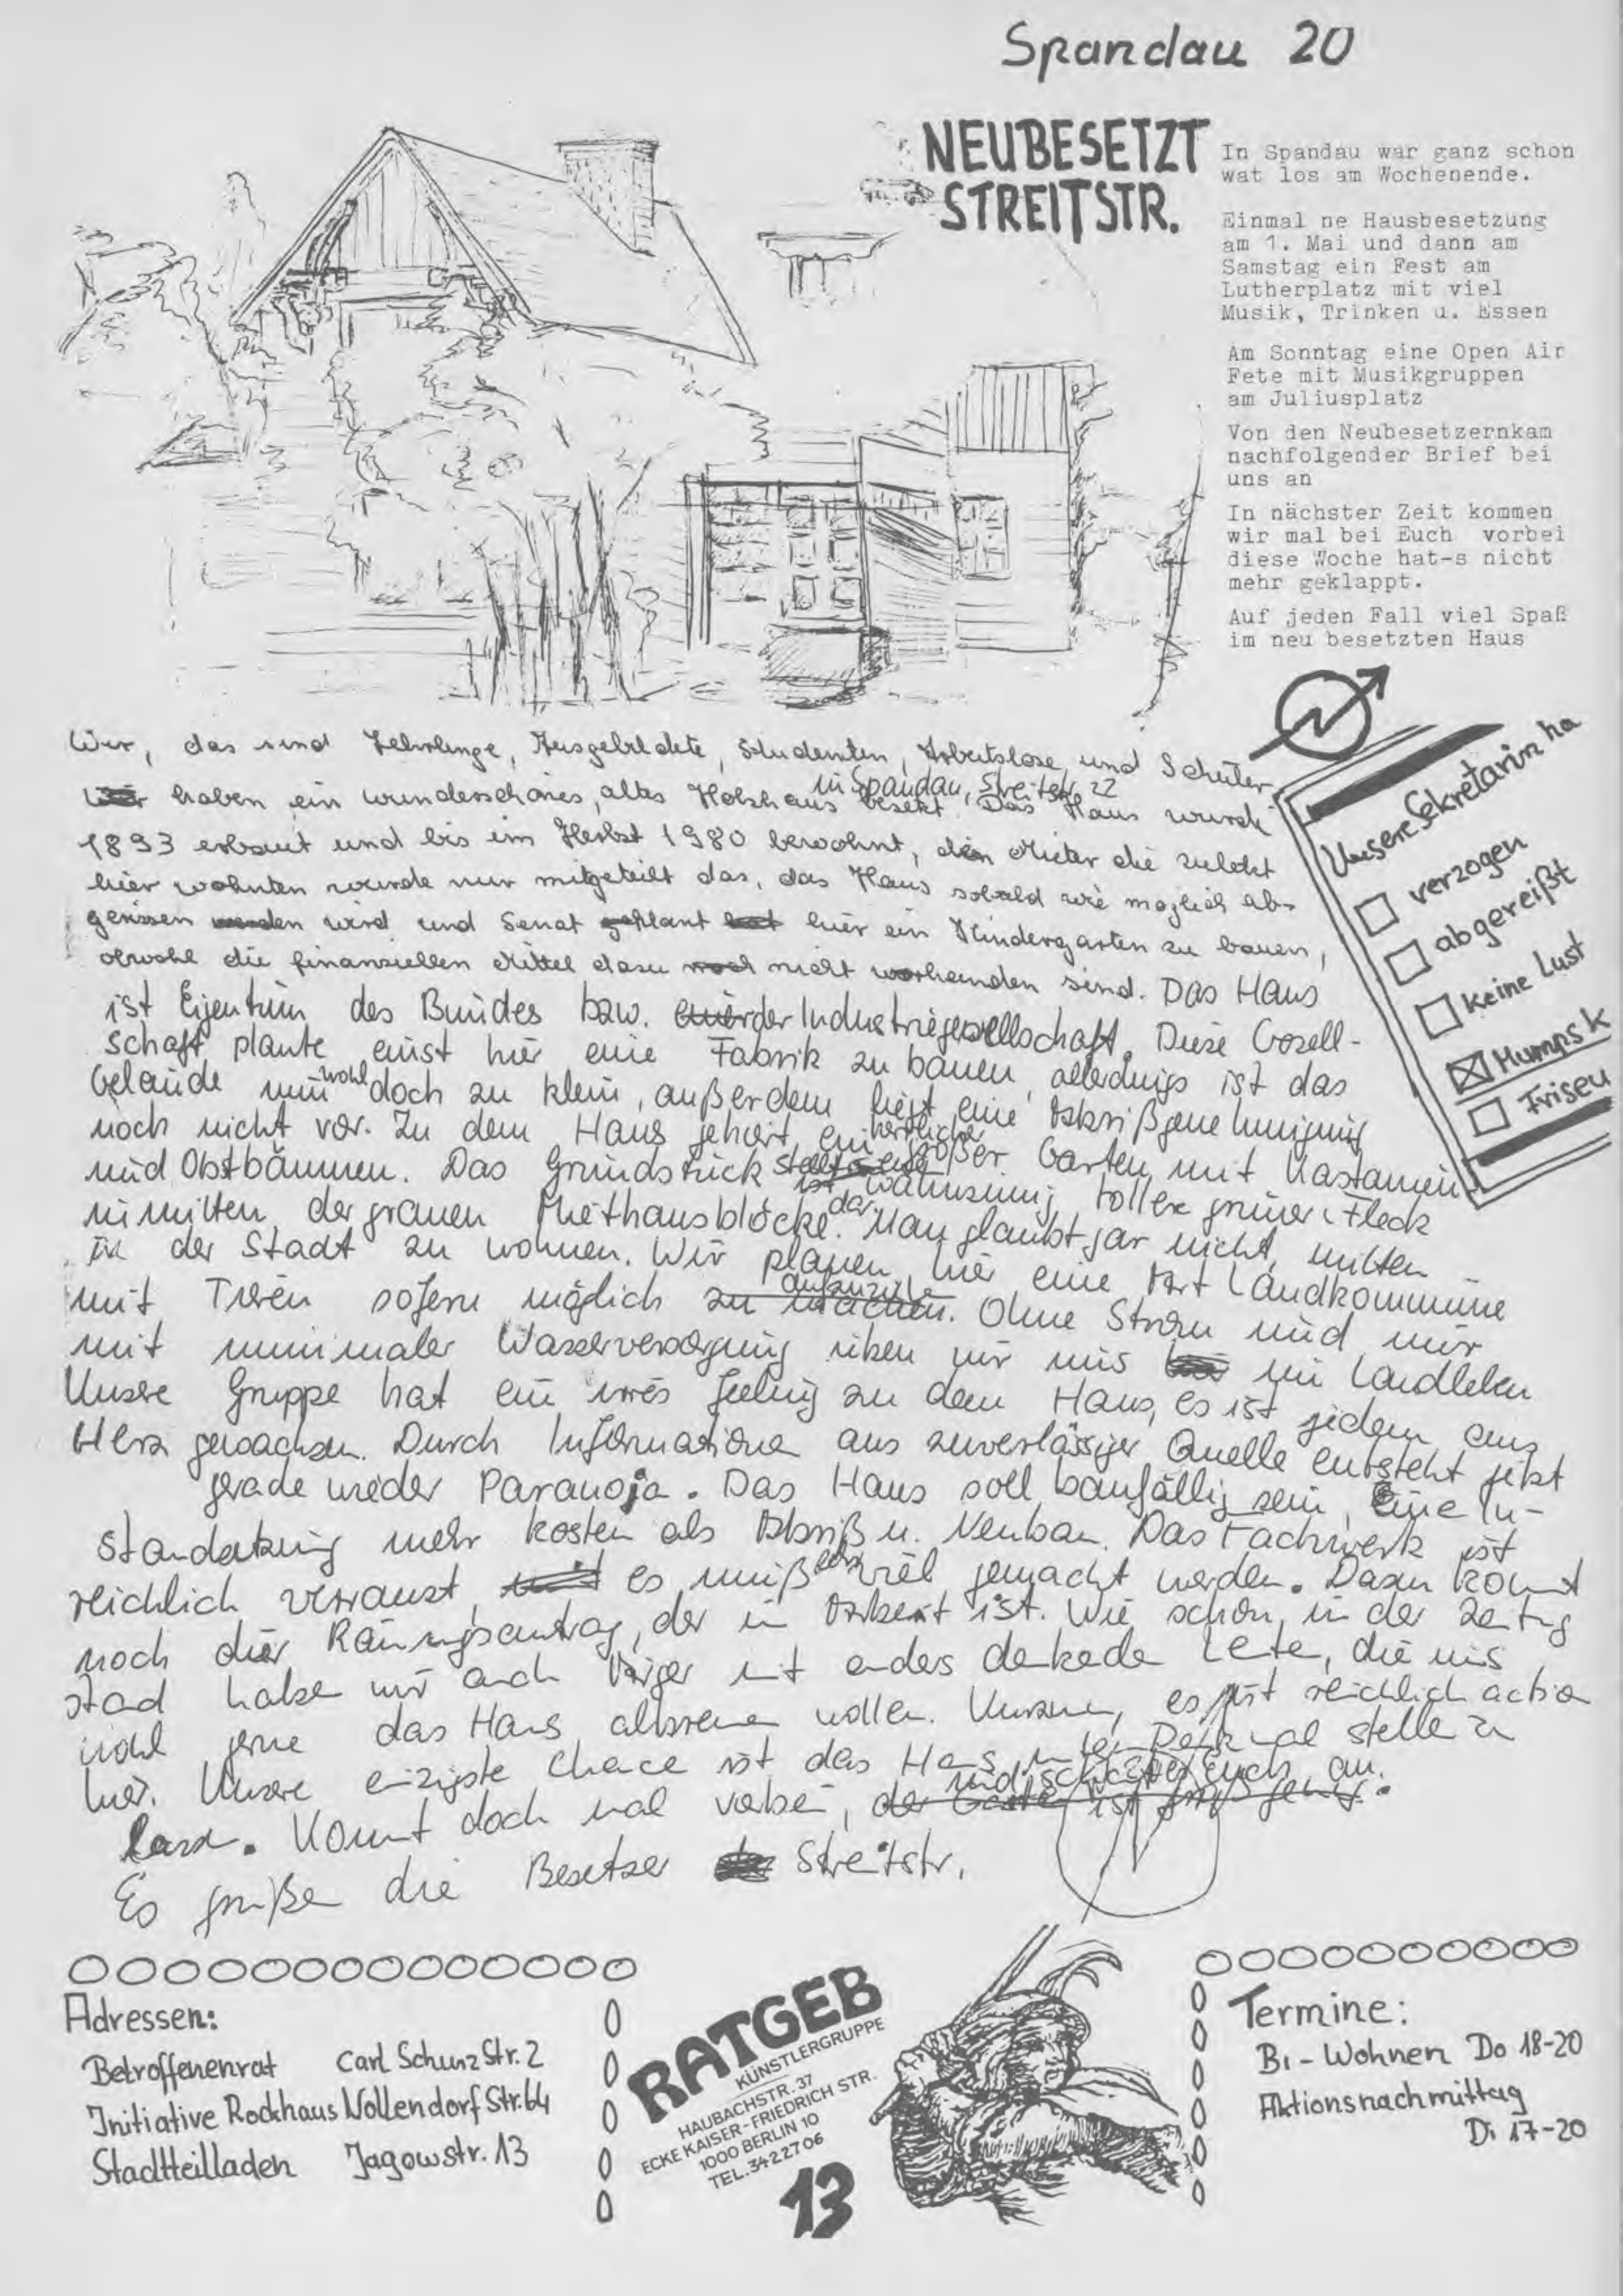 Spandau 20
NEUBESETZT
STREITSTR.
In Spandau war ganz schon
wat los am Wochenende.
Einmal ne Hausbesetzung
am 1. Mai und dann am
Samstag ein Fest am
Lutherplatz mit viel
Musik, Trinken u. Essen
Am Sonntag eine Open Air
Fete mit Musikgruppen
am Juliusplatz
Von den Neubesetzernkam
nachfolgender Brief bei
uns an
In nächster Zeit kommen
wir mal bei Euch vorbei
diese Woche hat-s nicht
mehr geklappt.
Auf jeden Fall viel Spaß
im neu besetzten Haus
Unsere Sekretärin ha
verzogen
abgereißt
Keine Lust
Humps k
Friseu
Wir, das sind Lehrlinge, Ausgebildete, Studenten, Arbeitslose und Schüler
haben ein wunderschönes, altes Holzhaus in Spandau, Streitstr. 22 besetzt. Das Haus wurde
1893 erbaut und bis im Herbst 1980 bewohnt, den Mieter die zuletzt
hier wohnten wurde nur mitgeteilt das, das Haus sobald wie möglich ab-
gerissen wird und Senat geplant hat hier ein Kindergarten zu bauen,
obwohl die finanziellen Mittel dazu noch nicht vorhanden sind. Das Haus
ist Eigentum des Bundes bzw. der Industriegesellschaft. Diese Gesell-
schaft plante einst hier eine Fabrik zu bauen, allerdings ist das
Gelände nun wohl doch zu klein, außerdem liegt eine Abrißgenehmigung
noch nicht vor. Zu dem Haus gehört ein herrlicher großer Garten mit Kastanien
und Obstbäumen. Das Grundstück stellt wahnsinnig toller grüner Fleck
inmitten der grauen Miethausblöcke dar. Man glaubt gar nicht, mitten
in der Stadt zu wohnen. Wir planen hier eine Art Landkommune
mit Tieren sofern möglich aufzuziehe. Ohne Strom und nur
mit minimaler Wasserversorgung üben wir uns im Landleben
Unsere Gruppe hat ein irres feeling zu dem Haus, es ist jedem ans
Herz gewachsen. Durch Informatione aus zuverlässiger Quelle entsteht jetzt
gerade wieder Paranoja. Das Haus soll baufällig sein, Eine In-
standsetzung mehr kosten als Abriß u. Neubau. Das Fachwerk ist
reichlich verwanzt, es muß viel gemacht werden. Dazu kommt
noch der Räumungsantrag, der in Arbeit ist. Wie schon in der Zeitung
stand haben wir auch Ärger mit anders denkenden Leute, die uns
wohl gerne das Haus abbrennen wollen. Kurzum, es gibt reichlich action
hier. Unsere einzigste Chance ist das Haus unter Denkmal stelle zu
lassen. Kommt doch mal vorbei, und schaut Euch um.
Es grüßen die Besetzer Streitstr.
Adressen:
Betroffenenrat Carl Schurz Str. 2
Initiative Rockhaus Nollendorf Str. 64
Stadtteilladen Jagowstr. 13
RATGEB
KÜNSTLERGRUPPE
HAUBACHSTR. 37
ECKE KAISER-FRIEDRICH STR.
1000 BERLIN 10
TEL. 342 27 06
13
Termine:
BI - Wohnen Do 18-20
Aktionsnachmittag
Di 17-20